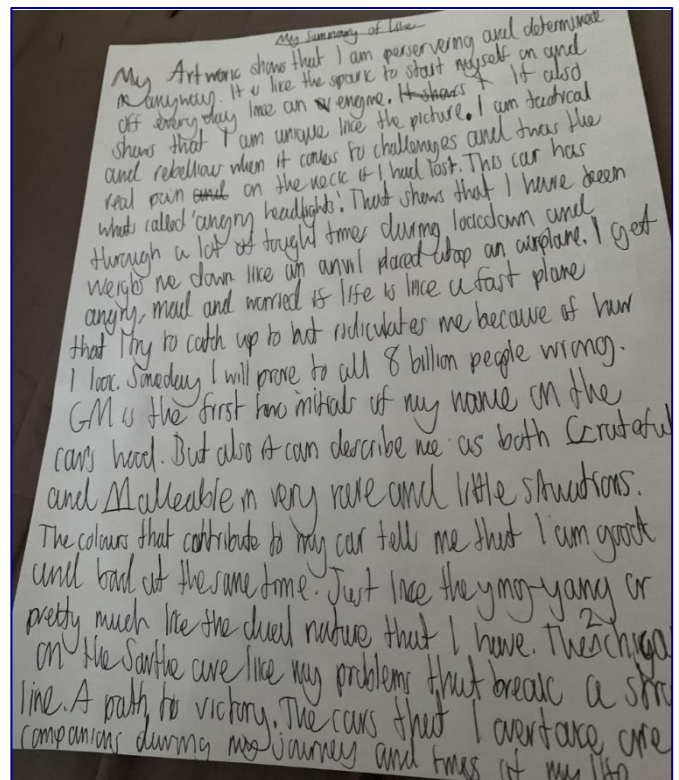 My Summary of Life
My Artwork shows that I am perservering and determined
anyway. It is like the spark to start myself on and
off everyday like an engine. It shows It also
shows that I am unique like the picture. I am tactical
and rebellious when it comes to challenges and twas the
real pain and on the neck if I had lost. This car has
whats called 'angry headlights'. That shows that I have been
through a lot of tought times during lockdown and
weighs me down like an anvil placed atop an airplane. I get
angry, mad and worried if life is like a fast plane
that I try to catch up to but ridiculates me because of how
I look. Someday I will prove to all 8 billion people wrong.
GM is the first two initials of my name on the
car's hood. But also it can describe me as both Grateful
and Malleable in very rare and little situations.
The colours that contribute to my car tell me that I am good
and bad at the same time. Just like the ying-yang or
pretty much like the duel nature that I have. The 2 chica
on the Sarthe are like my problems that break a stra
line. A path to victory. The cars that I overtake are
companions during my journey and times of my life